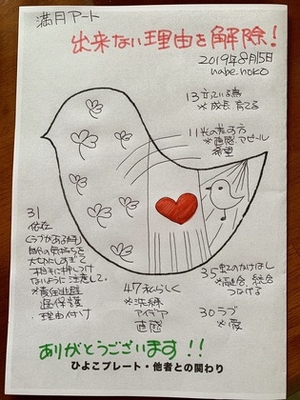 満月アート
出来ない理由を解除!
2019年8月5日
nabe noko
13 立っている鳥
※成長 育てる
11 光の差す方
※直感 アピール
希望
31
依存
(ラブがある時)
自分の気持ちを
大切にしすぎて
相手に押しつけ
ないように注意して。
※責任逃避
過保護
理由付け
47 私らしく
※洗練
アイデア
直感
35 虹のかけはし
※融合、統合
つなげる
30 ラブ
※愛
ありがとうございます!!
ひよこプレート・他者との関わり